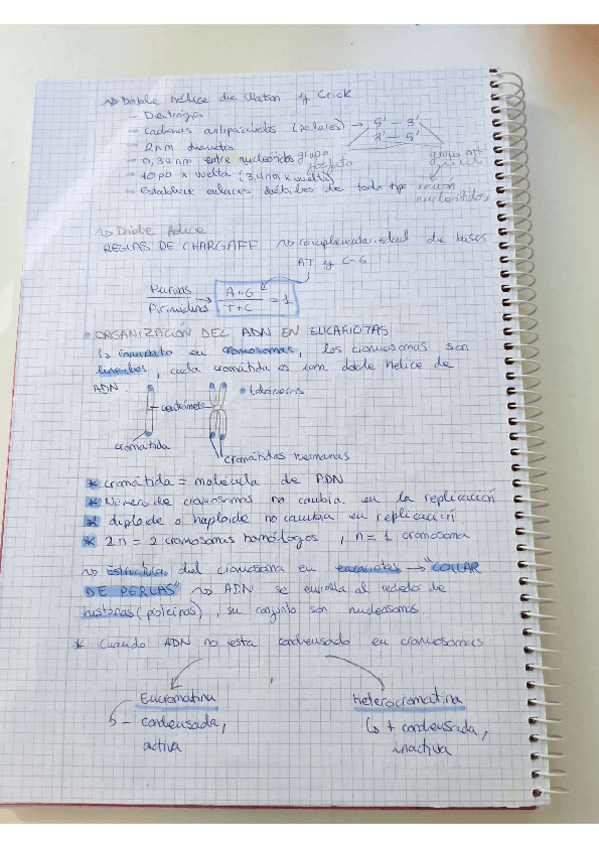 → Doble hélice de Watson y Crick
- Dextrógira
- Cadenas antiparalelas (polares) → 5' - 3'
3' - 5'
- 2nm diámetro
- 0,34nm entre nucleótidos grupo fosfato
- 10pb x vuelta (3,4nm x vuelta)
- Establece enlaces débiles de todo tipo
grupos
nucleótidos
→ Doble hélice
REGLAS DE CHARGAFF → complementariedad de bases
AT y C-G
Purinas / Pirimidinas → A+G / T+C = 1
• ORGANIZACIÓN DEL ADN EN EUCARIOTAS
↳ en cromosomas, los cromosomas son
lineales, cada cromátida es una doble hélice de
ADN.
• telómeros
centrómero
cromátida
cromátidas hermanas
* cromátida = molécula de ADN
* Número de cromosomas no cambia en la replicación
* diploide o haploide no cambia en replicación
* 2n = 2 cromosomas homólogos, n = 1 cromosoma
→ Estructura del cromosoma en eucariotas → "COLLAR
DE PERLAS" → ADN se enrolla al rededor de
histonas (proteínas), su conjunto son nucleosomas.
* Cuando ADN no esta condensado en cromosomas:
Eucromatina
↳ - condensada,
activa
Heterocromatina
↳ + condensada,
inactiva